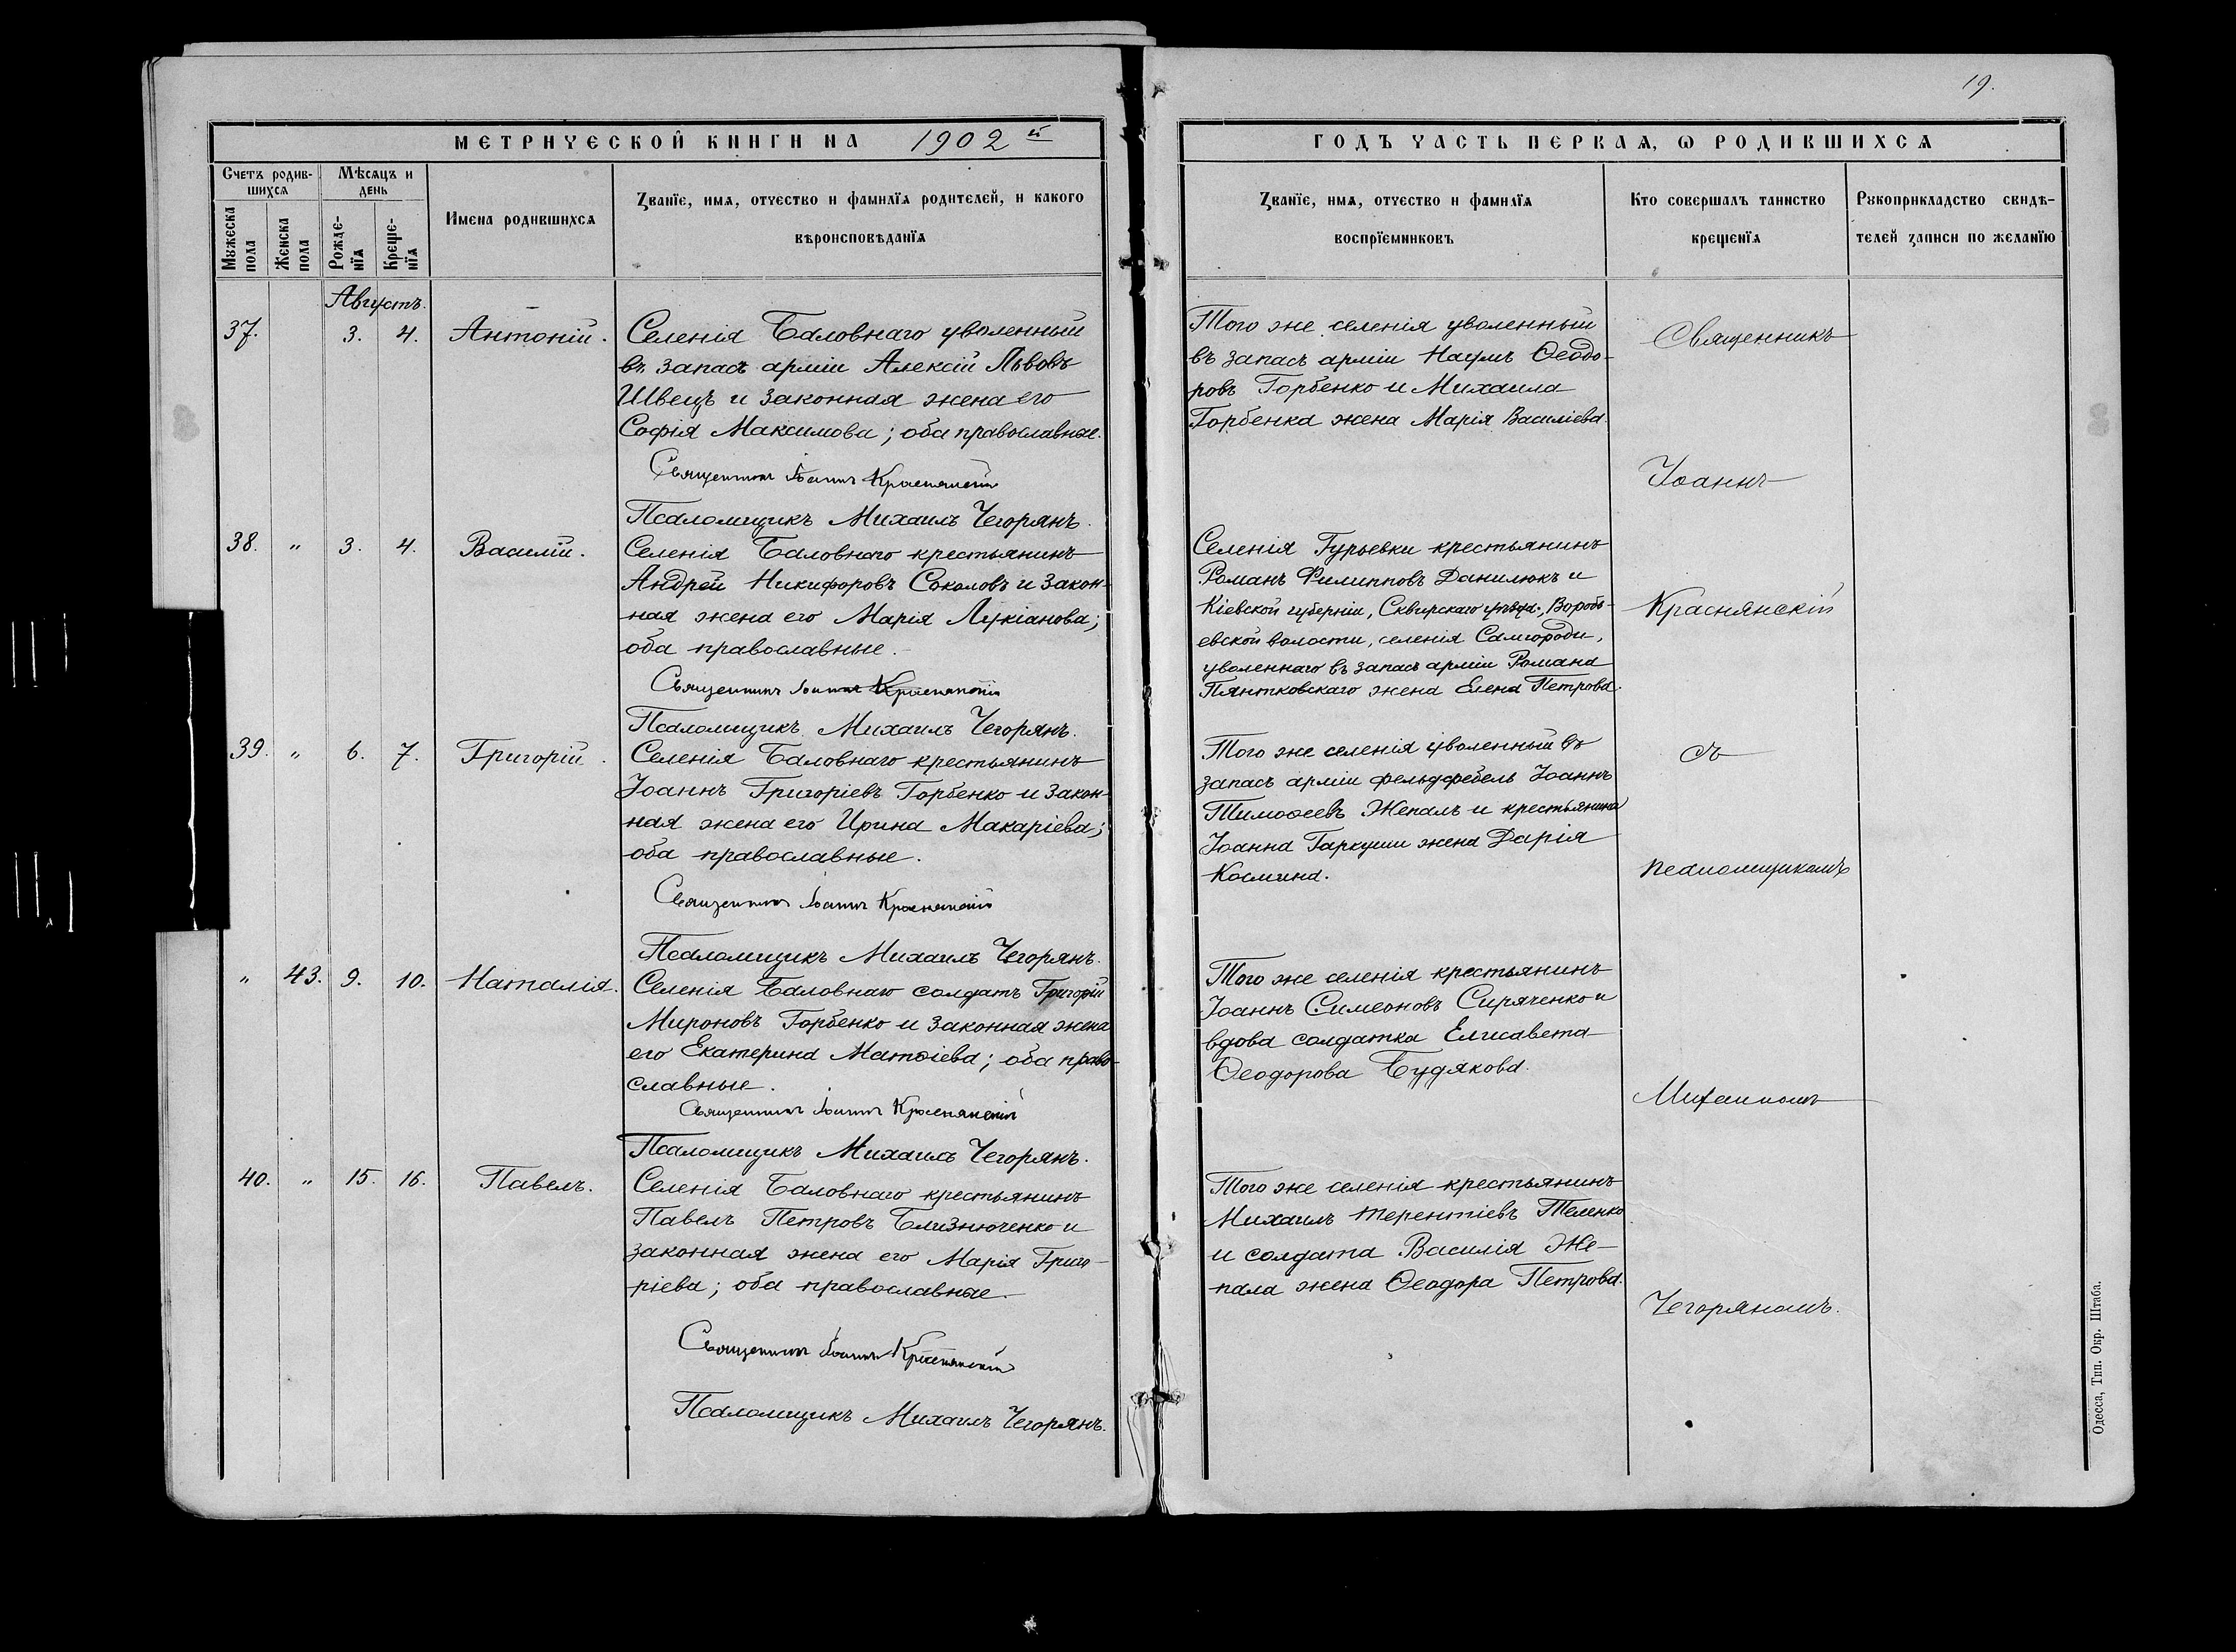 19.
МЕТРИЧЕСКОЙ КНИГИ НА 1902 й
ГОДЪ ЧАСТЬ ПЕРВАЯ, Ѡ РОДИВШИХСЯ
Счетъ родив-
шихся
Мѣсяцъ и
день
Мужеска
пола
Женска
пола
Рожде-
нїя
Креще-
нїя
Имена родившихся
Званїе, имя, отчество и фамилїя родителей, и какого
вѣроисповѣданїя
Званїе, имя, отчество и фамилїя
воспрїемниковъ
Кто совершалъ таинство
крещенїя
Рукоприкладство свидѣ-
телей записи по желанїю
Августъ.
37. 3. 4. Антоній.
Селенія Баловнаго уволенный
въ запасъ арміи Алексій Львовъ
Швецъ и законная жена его
Софія Максимова; оба православные.
Священникъ Іоаннъ Краснянскій
Псаломщикъ Михаилъ Чегорянъ.
Того же селенія уволенный
въ запасъ арміи Наумъ Ѳеодо-
ровъ Горбенко и Михаила
Горбенка жена Марія Василіева.
38. " 3. 4. Василій.
Селенія Баловнаго крестьянинъ
Андрей Никифоровъ Соколовъ и закон-
ная жена его Марія Лукіанова;
оба православные.
Священникъ Іоаннъ Краснянскій
Псаломщикъ Михаилъ Чегорянъ.
Селенія Гурьевки крестьянинъ
Романъ Филипповъ Данилюкъ и
Кіевской губерніи, Сквирскаго уѣзда, Воробь-
евской волости, селенія Самгородк-,
уволеннаго въ запасъ арміи Романа
Пянтковскаго жена Елена Петрова.
39. " 6. 7. Григорій.
Селенія Баловнаго крестьянинъ
Іоаннъ Григоріевъ Горбенко и закон-
ная жена его Ирина Макаріева;
оба православные.
Священникъ Іоаннъ Краснянскій
Псаломщикъ Михаилъ Чегорянъ.
Того же селенія уволенный въ
запасъ арміи фельдфебель Іоаннъ
Тимоѳеевъ Жепалъ и крестьянина
Іоанна Гаркуши жена Дарія
Космина.
" 43. 9. 10. Наталія.
Селенія Баловнаго солдатъ Григорій
Мироновъ Горбенко и законная жена
его Екатерина Матѳіева; оба право-
славные.
Священникъ Іоаннъ Краснянскій
Псаломщикъ Михаилъ Чегорянъ.
Того же селенія крестьянинъ
Іоаннъ Симеоновъ Сиряченко и
вдова солдатка Елисавета
Ѳеодорова Будякова.
40. " 15. 16. Павелъ.
Селенія Баловнаго крестьянинъ
Павелъ Петровъ Близнюченко и
законная жена его Марія Григо-
ріева; оба православные.
Священникъ Іоаннъ Краснянскій
Псаломщикъ Михаилъ Чегорянъ.
Того же селенія крестьянинъ
Михаилъ Терентіевъ Теленко
и солдата Василія Же-
пала жена Ѳеодора Петрова.
Священникъ
Іоаннъ
Краснянскій
съ
псаломщикомъ
Михаиломъ
Чегоряномъ.
Одесса, Тип. Окр. Штаба.